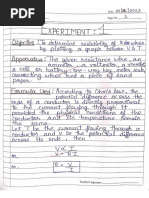 Date 10/08/2022
Page No. 2
EXPERIMENT : 1
Objective: To determine resistivity of two wires
by plotting a graph between V & I
Apparatus: The given resistance wire, an
ammeter, a voltmeter, a rheostat
a cell or battery, one way key, meter and
connecting wires, piece of sand
paper.
Formula Used: According to Ohm's law, the
potential difference across the
ends of a conductor is directly proportional
to the current flowing through it
provided the physical conditions of the
conductor and its temperature remain
the same.
Let I be the current flowing through the
conductor and V be the potential
difference across its ends, then
V ∝ I
V = RI
or
R = V/I
or